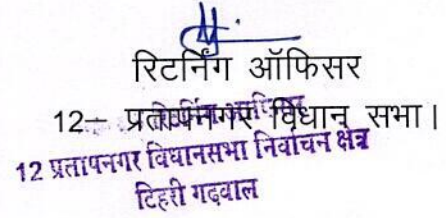 रिटर्निंग ऑफिसर
12– प्रतापनगर विधान सभा।
रिटर्निंग आफिसर
12 प्रतापनगर विधानसभा निर्वाचन क्षेत्र
टिहरी गढवाल